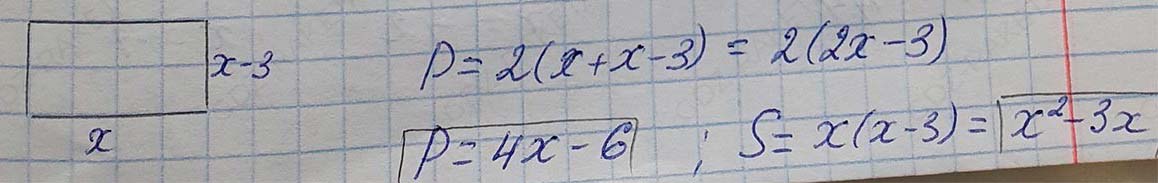 x-3
x
P=2(x+x-3)=2(2x-3)
P=4x-6 ; S=x(x-3)=x²-3x